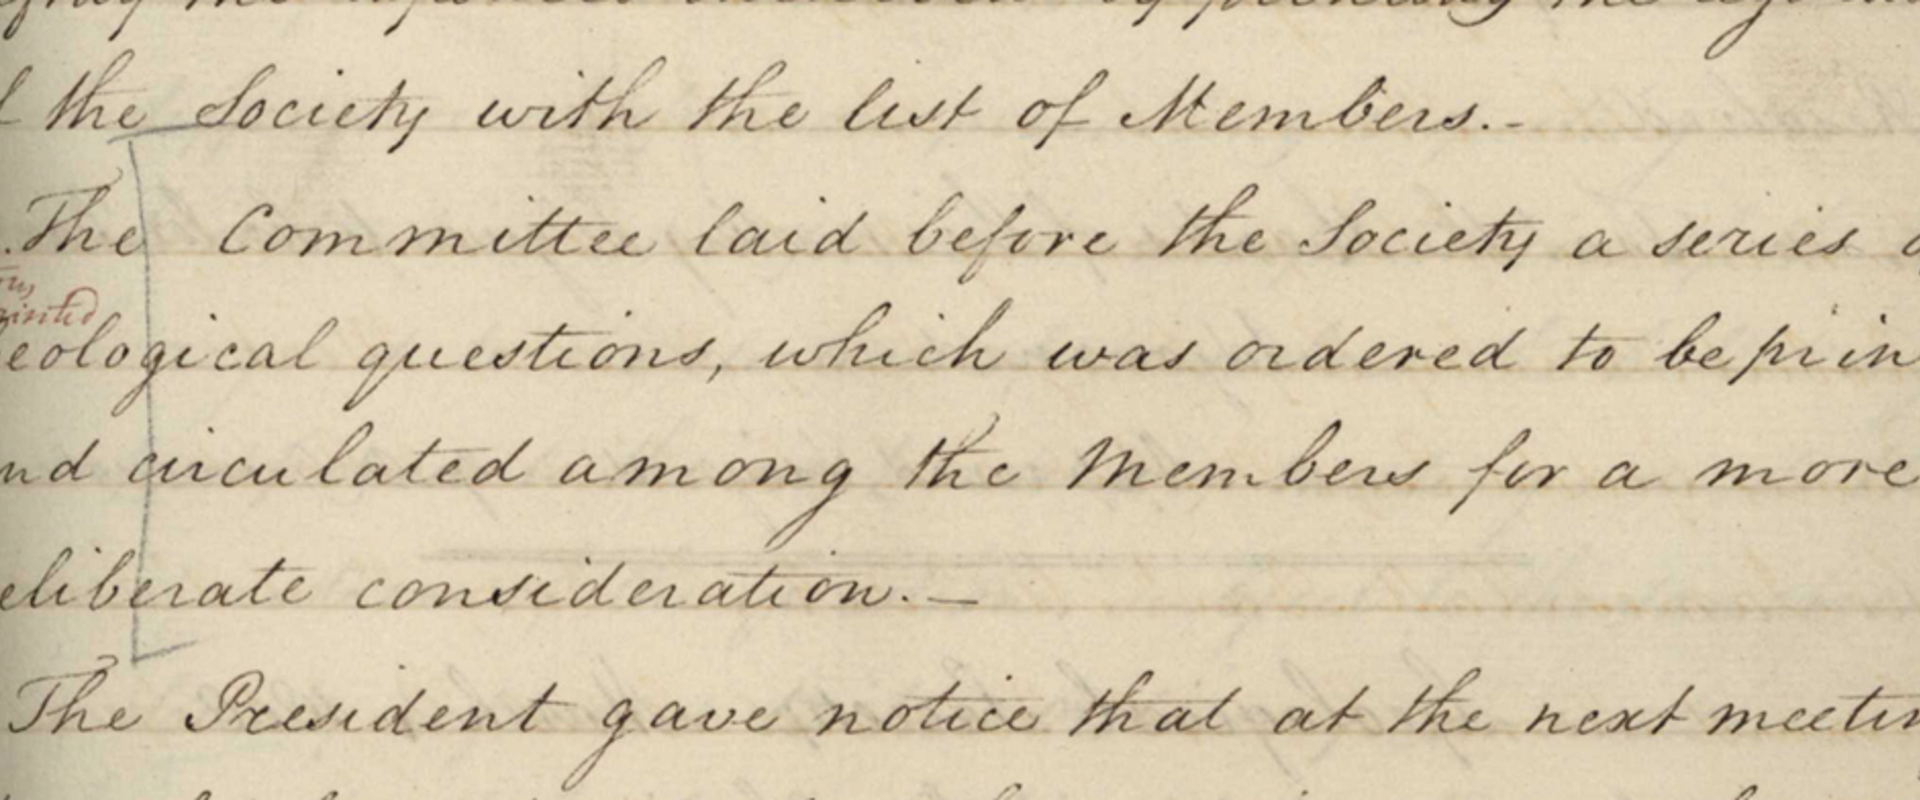 the Society with the list of Members.-
The Committee laid before the Society a series
inted
eological questions, which was ordered to be prin
nd circulated among the Members for a more
eliberate consideration.—
The President gave notice that at the next meetin